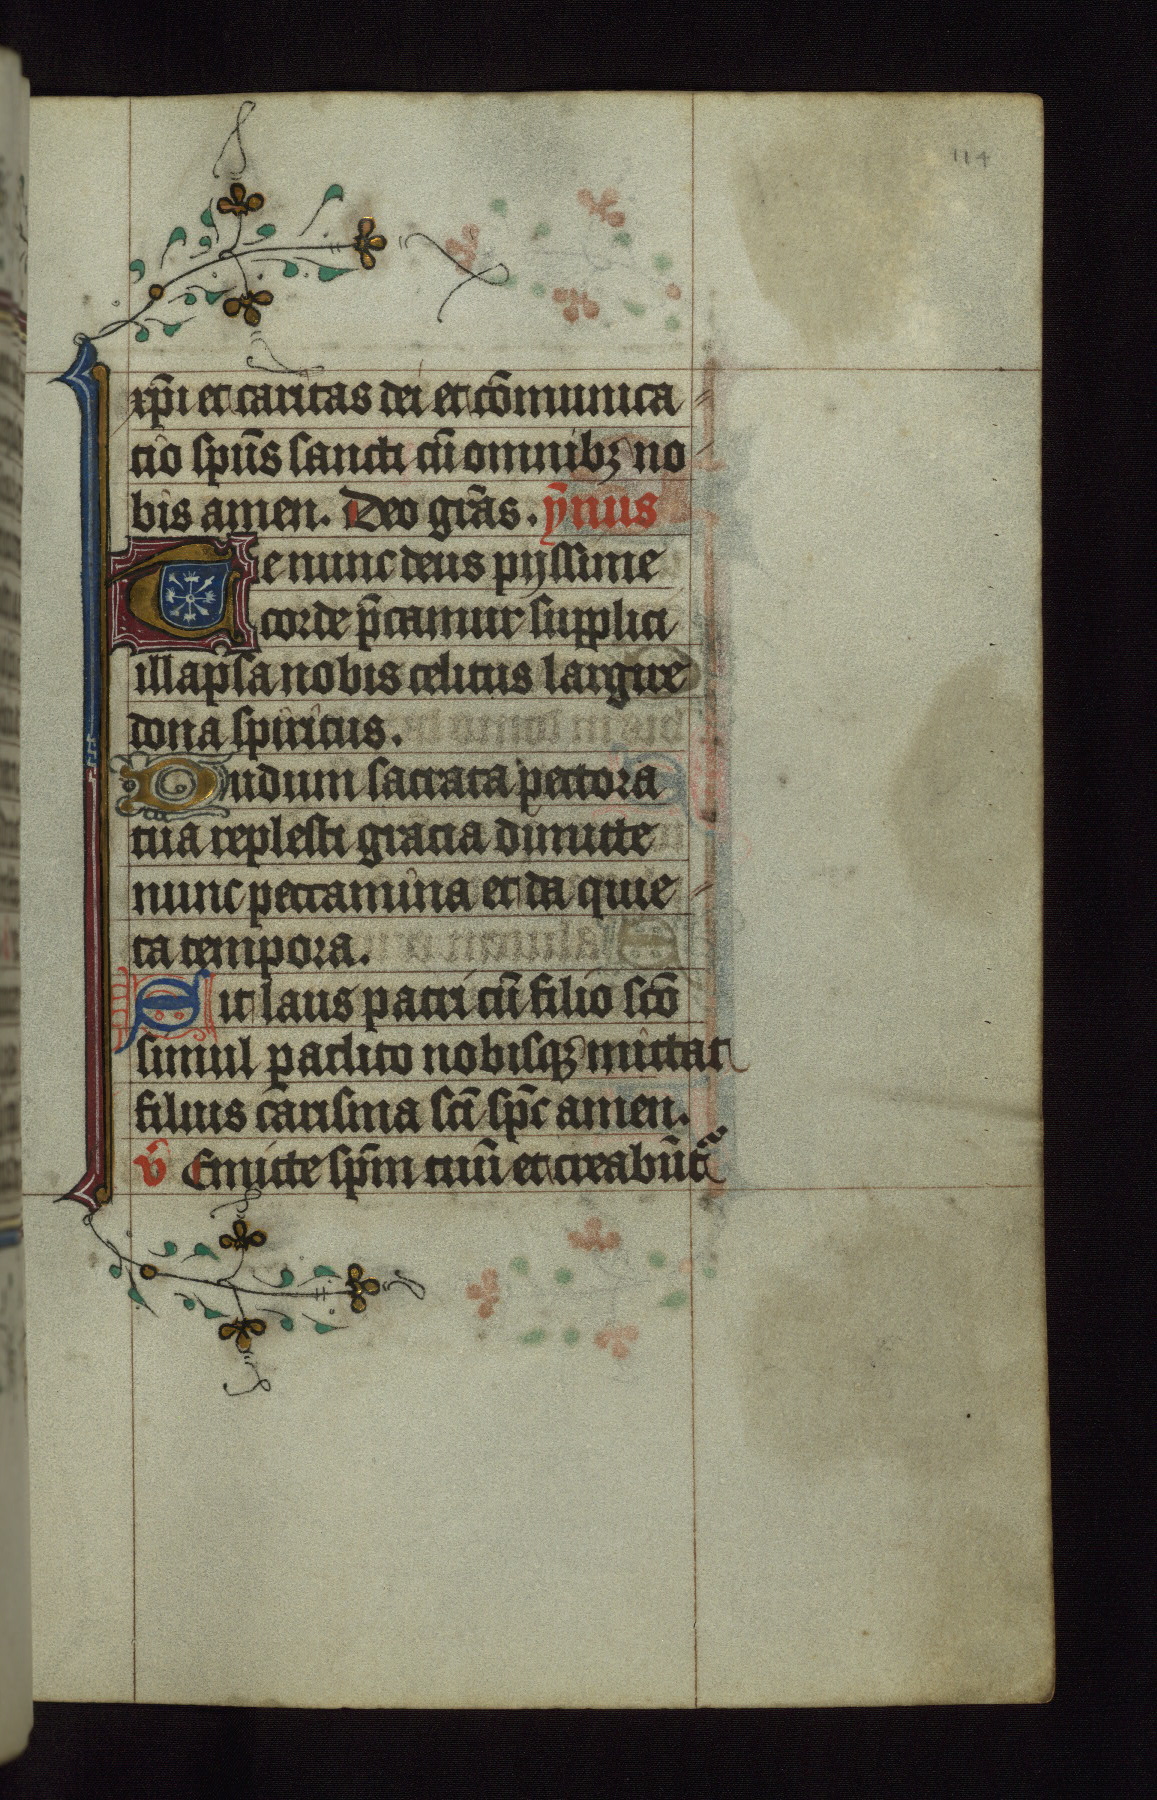 114
xp̄i et caritas dei et cōmunica
cio spūs sancti cū omnibꝫ no
bis amen. Deo grās. ȳnus
Te nunc deus pijssime
corde p̄camur supplici
illapsa nobis celitus largire
dona spiritus.
Dudum sacrata pectora
tua replesti gracia dimitte
nunc peccamina et da quie
ta tempora.
Sit laus patri cū filio scō
simul paclito nobisqꝫ mittat
filius carisma scī sp̄c amen.
v̄ Emitte sp̄m tuū et creabūt᷑